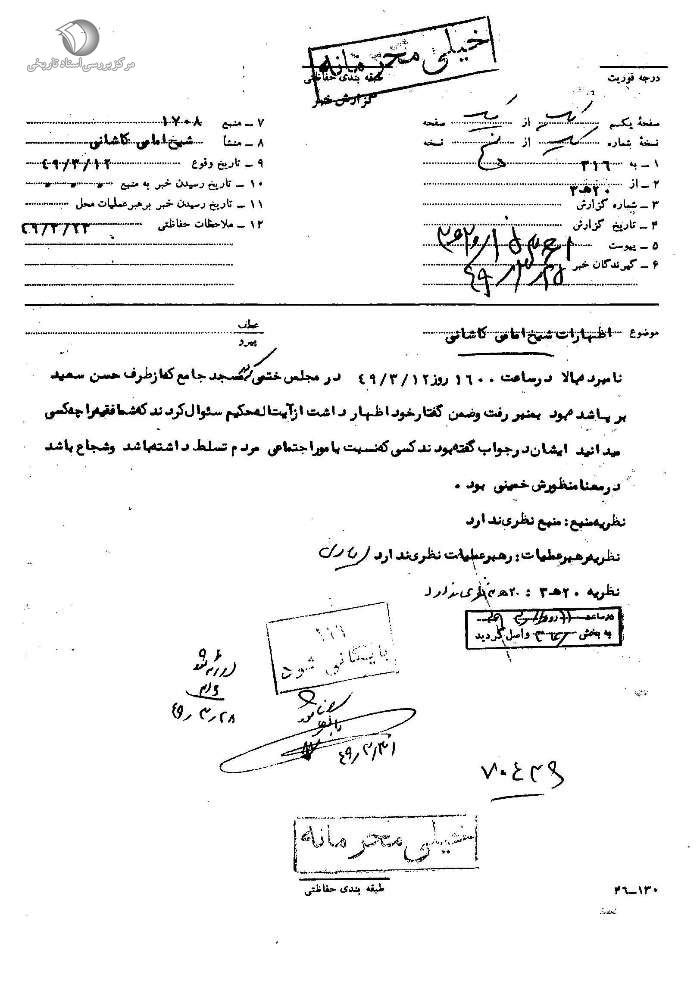 مرکز بررسی اسناد تاریخی
خیلی محرمانه
طبقه بندی حفاظتی
گزارش خبر
درجه فوریت
صفحهٔ یکم یک از یک صفحه
نسخهٔ شماره یک از نسخه
۱ - به ۳۱۶
۲ - از ۲۰هـ۳
۳ - شماره گزارش
۴ - تاریخ گزارش
۵ - پیوست
۶ - گیرندگان خبر
۷ - منبع ۱۷۰۸
۸ - منشأ شیخ امامی کاشانی
۹ - تاریخ وقوع ۴۹/۳/۱۲
۱۰ - تاریخ رسیدن خبر به منبع
۱۱ - تاریخ رسیدن خبر برهبر عملیات محل
۱۲ - ملاحظات حفاظتی ۴۹/۳/۲۳
موضوع اظهارات شیخ امامی کاشانی
عطف
پیرو
نامبرده بالا در ساعت ۱۶۰۰ روز ۴۹/۳/۱۲ در مجلس ختمی که در مسجد جامع که از طرف حسن سعید
بر پا شده بود بمنبر رفت و ضمن گفتار خود اظهار داشت از آیت اله حکیم سئوال کردند که شما فقیه را چه کسی
میدانید ایشان در جواب گفته بودند کسی که نسبت بامور اجتماعی مردم تسلط داشته باشد و شجاع باشد
در معنا منظورش خمینی بود .
نظریه منبع : منبع نظری ندارد
نظریه رهبر عملیات : رهبر عملیات نظری ندارد
نظریه ۲۰هـ۳ : ۲۰هـ۳ نظری ندارد
در ساعت روز
به بخش ۳۱۶ واصل گردید
بایگانی شود
۴۹/۳/۲۸
۴۹/۳/۳۱
۷۰۴۳۹
خیلی محرمانه
طبقه بندی حفاظتی
۲۶-۱۳۰